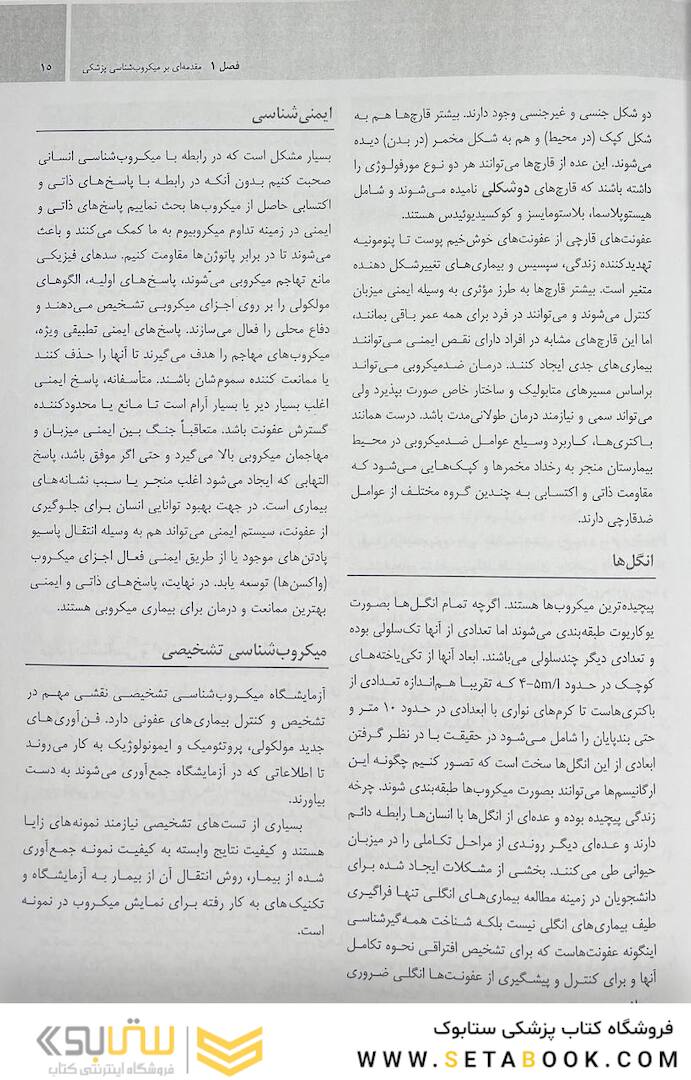 فصل ۱ مقدمه‌ای بر میکروب‌شناسی پزشکی ۱۵
دو شکل جنسی و غیرجنسی وجود دارند. بیشتر قارچ‌ها هم به
شکل کپک (در محیط) و هم به شکل مخمر (در بدن) دیده
می‌شوند. این عده از قارچ‌ها می‌توانند هر دو نوع مورفولوژی را
داشته باشند که قارچ‌های دوشکلی نامیده می‌شوند و شامل
هیستوپلاسما، بلاستومایسز و کوکسیدیوئیدس هستند.
عفونت‌های قارچی از عفونت‌های خوش‌خیم پوست تا پنومونیه
تهدیدکننده زندگی، سپسیس و بیماری‌های تغییرشکل دهنده
متغیر است. بیشتر قارچ‌ها به طرز مؤثری به وسیله ایمنی میزبان
کنترل می‌شوند و می‌توانند در فرد برای همه عمر باقی بمانند،
اما این قارچ‌های مشابه در افراد دارای نقص ایمنی می‌توانند
بیماری‌های جدی ایجاد کنند. درمان ضدمیکروبی می‌تواند
براساس مسیرهای متابولیک و ساختار خاص صورت بپذیرد ولی
می‌تواند سمی و نیازمند درمان طولانی‌مدت باشد. درست همانند
باکتری‌ها، کاربرد وسیلع عوامل ضدمیکروبی در محیط
بیمارستان منجر به رخداد مخمرها و کپک‌هایی می‌شود که
مقاومت ذاتی و اکتسابی به چندین گروه مختلف از عوامل
ضدقارچی دارند.
انگل‌ها
پیچیده‌ترین میکروب‌ها هستند. اگرچه تمام انگل‌ها بصورت
یوکاریوت طبقه‌بندی می‌شوند اما تعدادی از آنها تک‌سلولی بوده
و تعدادی دیگر چندسلولی می‌باشند. ابعاد آنها از تکی‌یاخته‌های
کوچک در حدود ۴-۵m/l که تقریبا هم‌اندازه تعدادی از
باکتری‌هاست تا کرم‌های نواری با ابعادی در حدود ۱۰ متر و
حتی بندپایان را شامل می‌شود در حقیقت با در نظر گرفتن
ابعادی از این انگل‌ها سخت است که تصور کنیم چگونه این
ارگانیسم‌ها می‌توانند بصورت میکروب‌ها طبقه‌بندی شوند. چرخه
زندگی پیچیده بوده و عده‌ای از انگل‌ها با انسان‌ها رابطه دائم
دارند و عده‌ای دیگر روندی از مراحل تکاملی را در میزبان
حیوانی طی می‌کنند. بخشی از مشکلات ایجاد شده برای
دانشجویان در زمینه مطالعه بیماری‌های انگلی تنها فراگیری
طیف بیماری‌های انگلی نیست بلکه شناخت همه‌گیرشناسی
اینگونه عفونت‌هاست که برای تشخیص افتراقی نحوه تکامل
آنها و برای کنترل و پیشگیری از عفونت‌ها انگلی ضروری
ایمنی‌شناسی
بسیار مشکل است که در رابطه با میکروب‌شناسی انسانی
صحبت کنیم بدون آنکه در رابطه با پاسخ‌های ذاتی و
اکتسابی حاصل از میکروب‌ها بحث نماییم پاسخ‌های ذاتی و
ایمنی در زمینه تداوم میکروبیوم به ما کمک می‌کنند و باعث
می‌شوند تا در برابر پاتوژن‌ها مقاومت کنیم. سدهای فیزیکی
مانع تهاجم میکروبی می‌شوند، پاسخ‌های اولیه، الگوهای
مولکولی را بر روی اجزای میکروبی تشخیص می‌دهند و
دفاع محلی را فعال می‌سازند. پاسخ‌های ایمنی تطبیقی ویژه،
میکروب‌های مهاجم را هدف می‌گیرند تا آنها را حذف کنند
یا ممانعت کننده سموم‌شان باشند. متأسفانه، پاسخ ایمنی
اغلب بسیار دیر یا بسیار آرام است تا مانع یا محدودکننده
گسترش عفونت باشد. متعاقباً جنگ بین ایمنی میزبان و
مهاجمان میکروبی بالا می‌گیرد و حتی اگر موفق باشد، پاسخ
التهابی که ایجاد می‌شود اغلب منجر یا سبب نشانه‌های
بیماری است. در جهت بهبود توانایی انسان برای جلوگیری
از عفونت، سیستم ایمنی می‌تواند هم به وسیله انتقال پاسیو
پادتن‌های موجود یا از طریق ایمنی فعال اجزای میکروب
(واکسن‌ها) توسعه یابد. در نهایت، پاسخ‌های ذاتی و ایمنی
بهترین ممانعت و درمان برای بیماری میکروبی هستند.
میکروب‌شناسی تشخیصی
آزمایشگاه میکروب‌شناسی تشخیصی نقشی مهم در
تشخیص و کنترل بیماری‌های عفونی دارد. فن‌آوری‌های
جدید مولکولی، پروتئومیک و ایمونولوژیک به کار می‌روند
تا اطلاعاتی که در آزمایشگاه جمع‌آوری می‌شوند به دست
بیاورند.
بسیاری از تست‌های تشخیصی نیازمند نمونه‌های زایا
هستند و کیفیت نتایج وابسته به کیفیت نمونه جمع‌آوری
شده از بیمار، روش انتقال آن از بیمار به آزمایشگاه و
تکنیک‌های به کار رفته برای نمایش میکروب در نمونه
است.
فروشگاه کتاب پزشکی ستابوک
WWW.SETABOOK.COM
ستابوک
فروشگاه اینترنتی کتاب